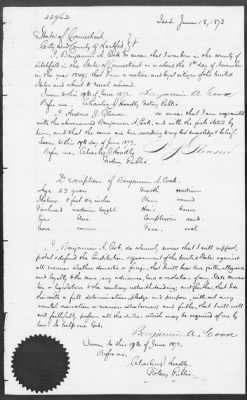 22962
Issd June 18, 1873
State of Connecticut
City and County of Hartford
I, Benjamin A. Cook do swear that I was born in the county of
Litchfield in the State of Connecticut on or about the first day of
in the year 1849; that I am a native and loyal citizen of the United
States and about to travel abroad.
Sworn to this 17th of June 1873. Benjamin A. Cook
Before me, Charles J. Hoadly,
Notary Public.
I, do swear that I am acquainted
with the above named Benjamin A. Cook, and with the facts stated by
him, and that the same are true according to my knowledge & belief.
Sworn to this 17th day of June 1873.
Before me, Charles J. Hoadly
Notary Public.
Description of Benjamin A. Cook.
Age 23 years
Mouth medium
Stature 5 feet six inches
Chin round
Forehead
Hair brown
Eyes blue
Complexion
Nose
Face, oval
I, Benjamin A. Cook do solemnly swear that I will support,
protect & defend the Constitution & government of the United States against
all enemies whether domestic or foreign, that I will bear true faith, allegiance
and loyalty to the same, any ordinance, law or resolution of any State
or Legislature to the contrary notwithstanding; and further, that I do
this with a full determination, pledge and purpose, without any
mental reservation or evasion whatsoever; and further, that I will well
and faithfully perform all the duties which may be required of me by
law. So help me God.
Benjamin A. Cook
Sworn to this 17th of June 1873.
Before me,
Charles J. Hoadly,
Notary Public.